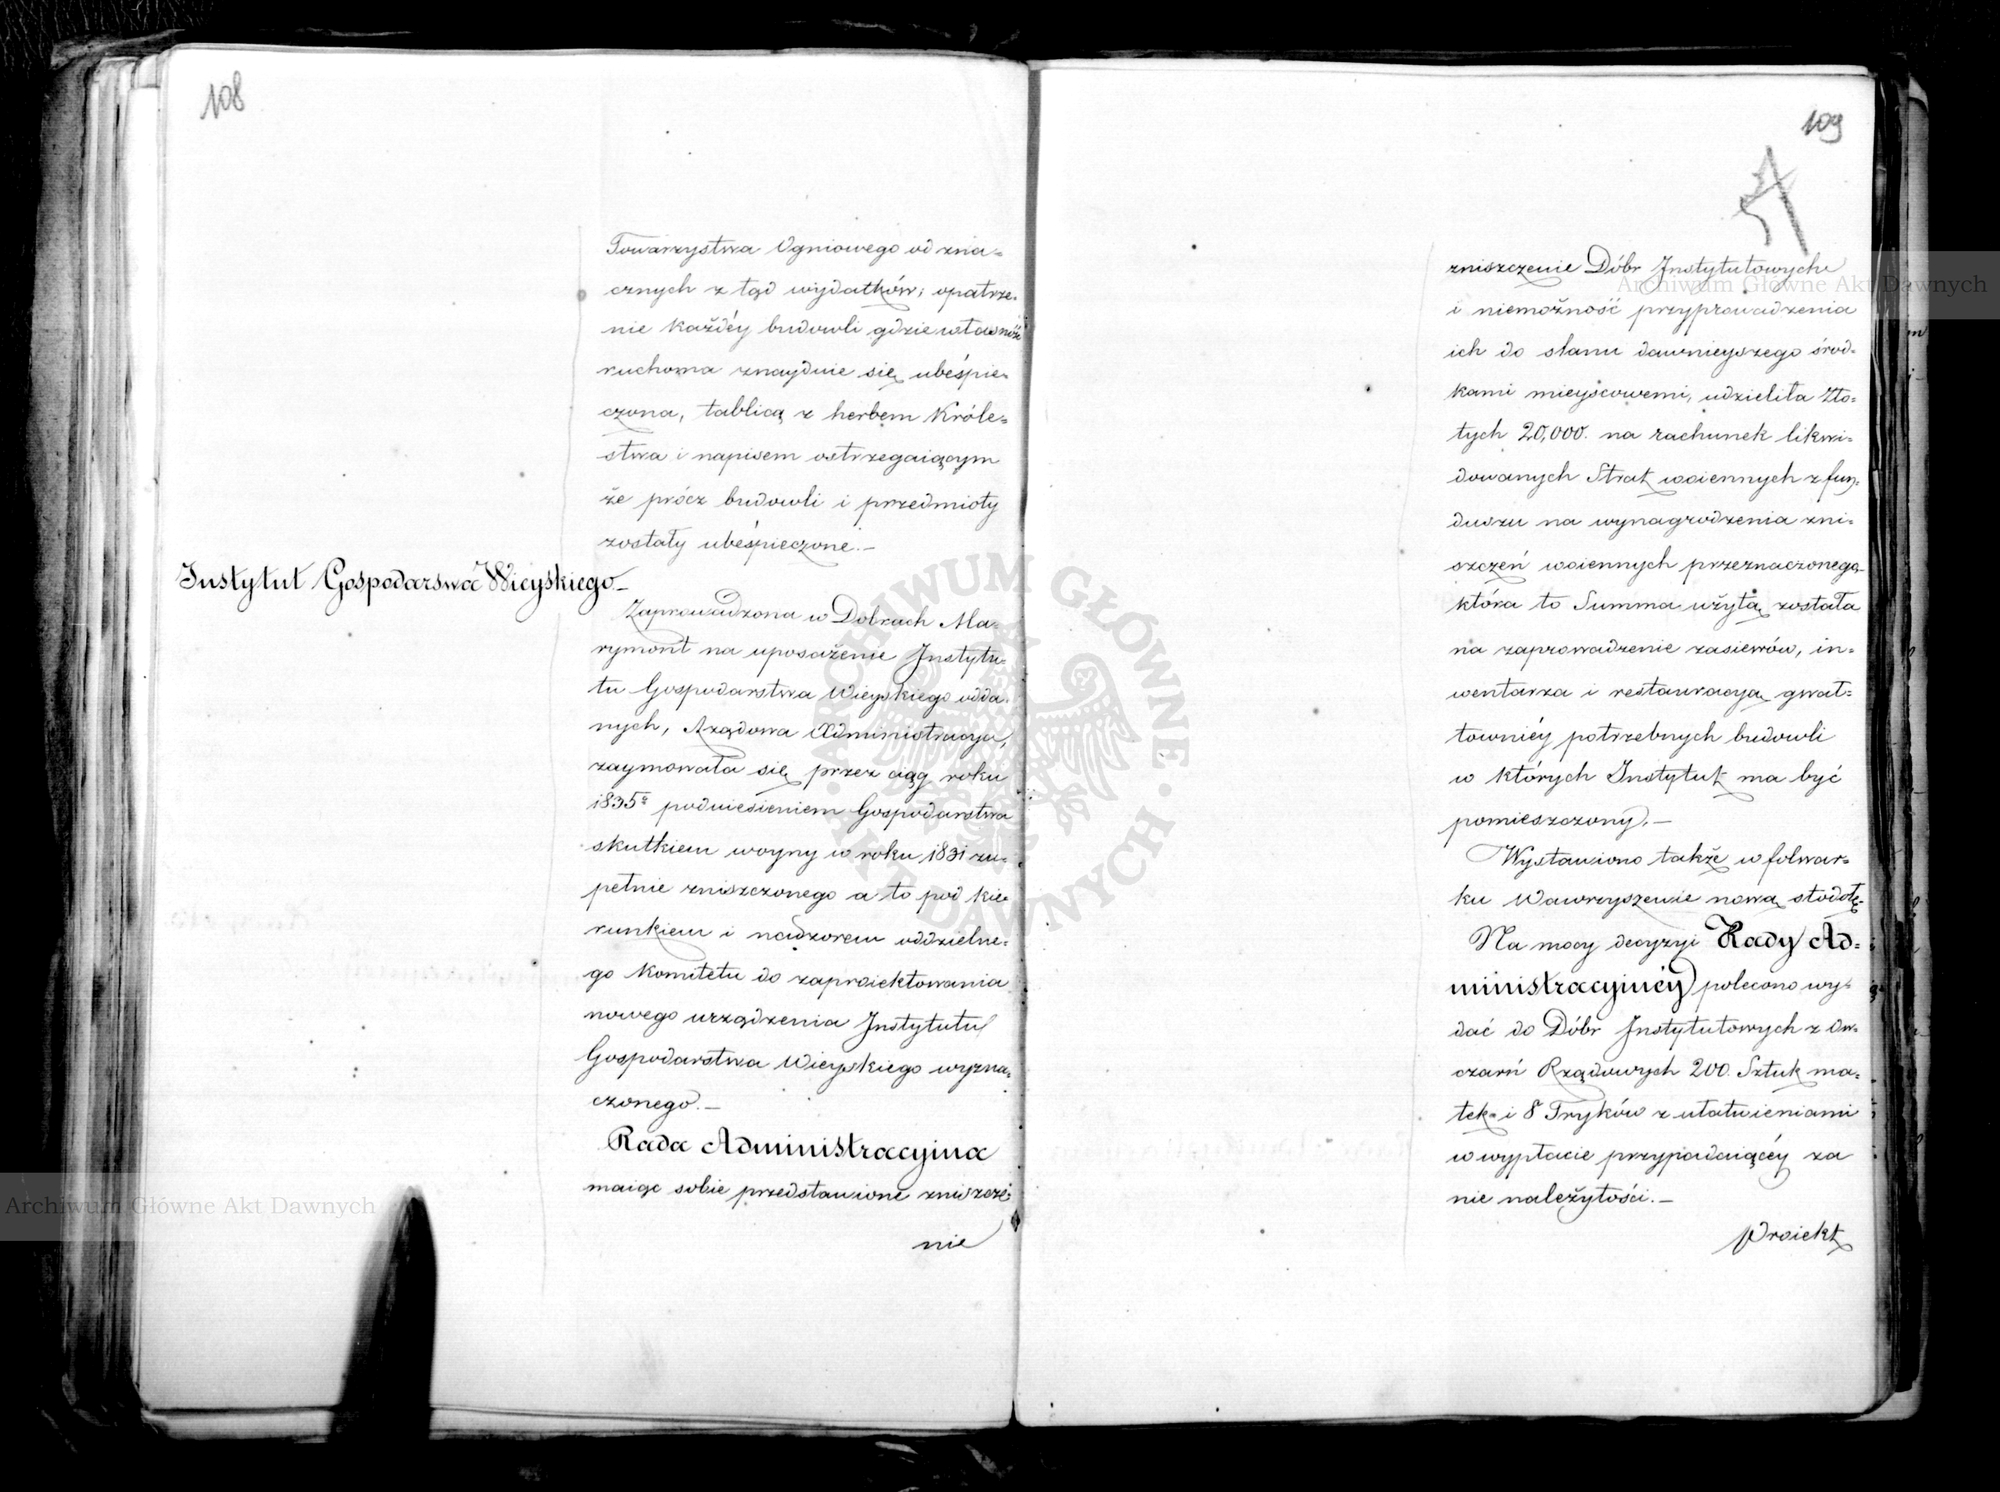 108
Towarzystwa Ogniowego od zna=
cznych z tąd wydatków; opatrze=
nie każdéy budowli gdzie własność
ruchoma znayduie się ubéśpie=
czona, tablicą z herbem Króle=
stwa i napisem ostrzegaiącym
że prócz budowli i przedmioty
zostały ubéśpieczone.–
Instytut Gospodarswa Wieyskiego.–
Zaprowadzona w Dobrach Ma=
rymont na uposażenie Instytu=
tu Gospodarstwa Wieyskiego odda=
nych, Rządowa Administracya,
zaymowała się przez ciąg roku
1835º podniesieniem Gospodarstwa
skutkiem woyny w roku 1831 zu=
pełnie zniszczonego a to pod kie
runkiem i nadzorem oddzielne=
go Komitetu do zaproiektowania
nowego urządzenia Instytutu
Gospodarstwa Wieyskiego wyzna=
czonego.–
Rada Administracyina
maiąc sobie przedstawione zniszcze=
nie
109
zniszczenie Dóbr Instytutowych
i niemożność przyprowadzenia
ich do stanu dawnieyszego środ=
kami mieyscowemi, udzieliła Zło=
tych 20,000. na rachunek likwi=
dowanych Strat woiennych z fun=
duszu na wynagrodzenia zni=
szczeń woiennych przeznaczonego
która to Summa użytą została
na zaprowadzenie zasiewów, in=
wentarza i restauracyą gwał=
townićy potrzebnych budowli
w których Instytut ma być
pomieszczony.–
Wystawiono także w folwar=
ku Wawrzyszewie nową stodołę.
Na mocy decyzyi Rady Ad=
ministracyinéy polecono wy=
dać do Dóbr Instytutowych z ow=
czarń Rządowych 200. Sztuk ma=
tek i 8 Tryków z ułatwieniami
w wypłacie przypadaiącéy za
nie należytości.–
Proiekt
Archiwum Główne Akt Dawnych
Archiwum Główne Akt Dawnych
ARCHIWUM GŁÓWNE · AKT DAWNYCH ·